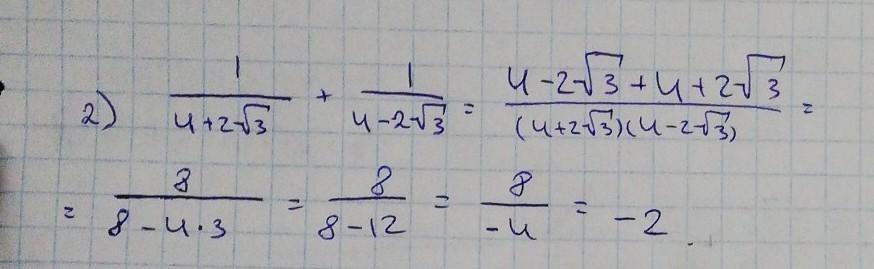 2) 1/(4+2√3) + 1/(4-2√3) = (4-2√3+4+2√3)/((4+2√3)(4-2√3)) =
= 8/(8-4·3) = 8/(8-12) = 8/(-4) = -2